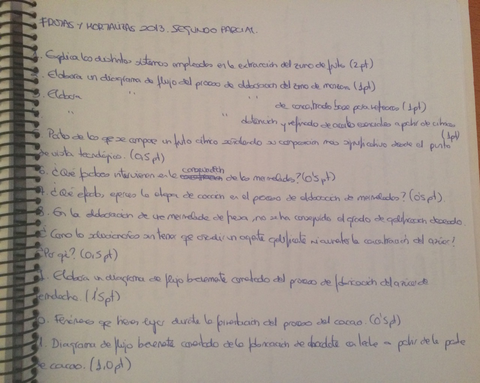 FRUTAS Y HORTALIZAS 2013. SEGUNDO PARCIAL.
Explica los distintos sistemas empleados en la extracción del zumo de fruta (2pt)
Elabora un diagrama de flujo del proceso de elaboración del zumo de manzana (1pt)
Elabora " " de concentrado base para refrescos (1pt)
" " obtención y refinado de aceites esenciales a partir de cítricos (1pt)
Partes de las que se compone un fruto cítrico señalando su composición más significativa desde el punto
de vista tecnológico. (0,5pt)
6. ¿Qué factores intervienen en la composición de las mermeladas? (0'5pt)
7. ¿Qué efectos ejerce la etapa de cocción en el proceso de elaboración de mermeladas? (0'5pt)
8. En la elaboración de una mermelada de fresa, no se ha conseguido el grado de gelificación deseado.
¿Cómo lo solucionarías sin tener que añadir un agente gelificante ni aumentar la concentración del azúcar?
¿Por qué? (0,5pt)
Elabora un diagrama de flujo brevemente comentado del proceso de fabricación del azúcar de
remolacha. (1'5pt)
Fenómenos que tienen lugar durante la fermentación del proceso del cacao. (0'5pt)
Diagrama de flujo brevemente comentado de la fabricación de chocolate con leche a partir de la pasta
de cacao. (1,0pt)